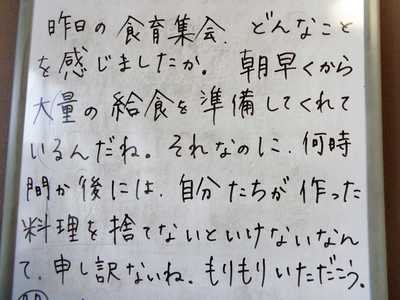 昨日の食育集会、どんなこと
を感じましたか。朝早くから
大量の給食を準備してくれて
いるんだね。それなのに、何時
間か後には、自分たちが作った
料理を捨てないといけないなん
て、申し訳ないね。もりもりいただこう。